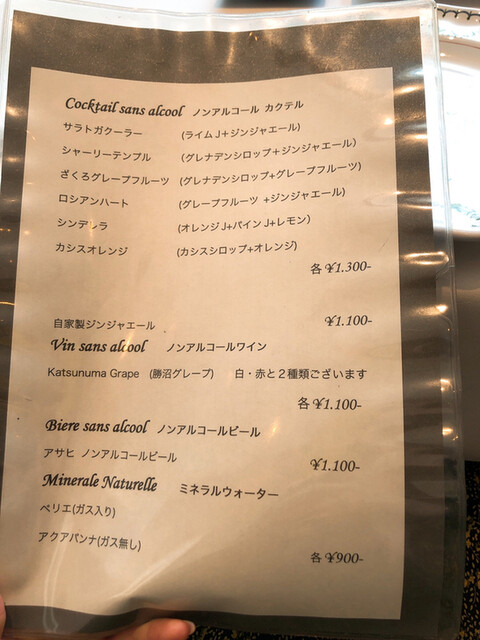 Cocktail sans alcool ノンアルコール カクテル
サラトガクーラー (ライムJ+ジンジャエール)
シャーリーテンプル (グレナデンシロップ+ジンジャエール)
ざくろグレープフルーツ (グレナデンシロップ+グレープフルーツ)
ロシアンハート (グレープフルーツ +ジンジャエール)
シンデレラ (オレンジJ+パインJ+レモン)
カシスオレンジ (カシスシロップ+オレンジ)
各 ¥1.300-
自家製ジンジャエール ¥1.100-
Vin sans alcool ノンアルコールワイン
Katsunuma Grape (勝沼グレープ) 白・赤と2種類ございます
各 ¥1.100-
Biere sans alcool ノンアルコールビール
アサヒ ノンアルコールビール
¥1.100-
Minerale Naturelle ミネラルウォーター
ペリエ(ガス入り)
アクアパンナ(ガス無し)
各 ¥900-